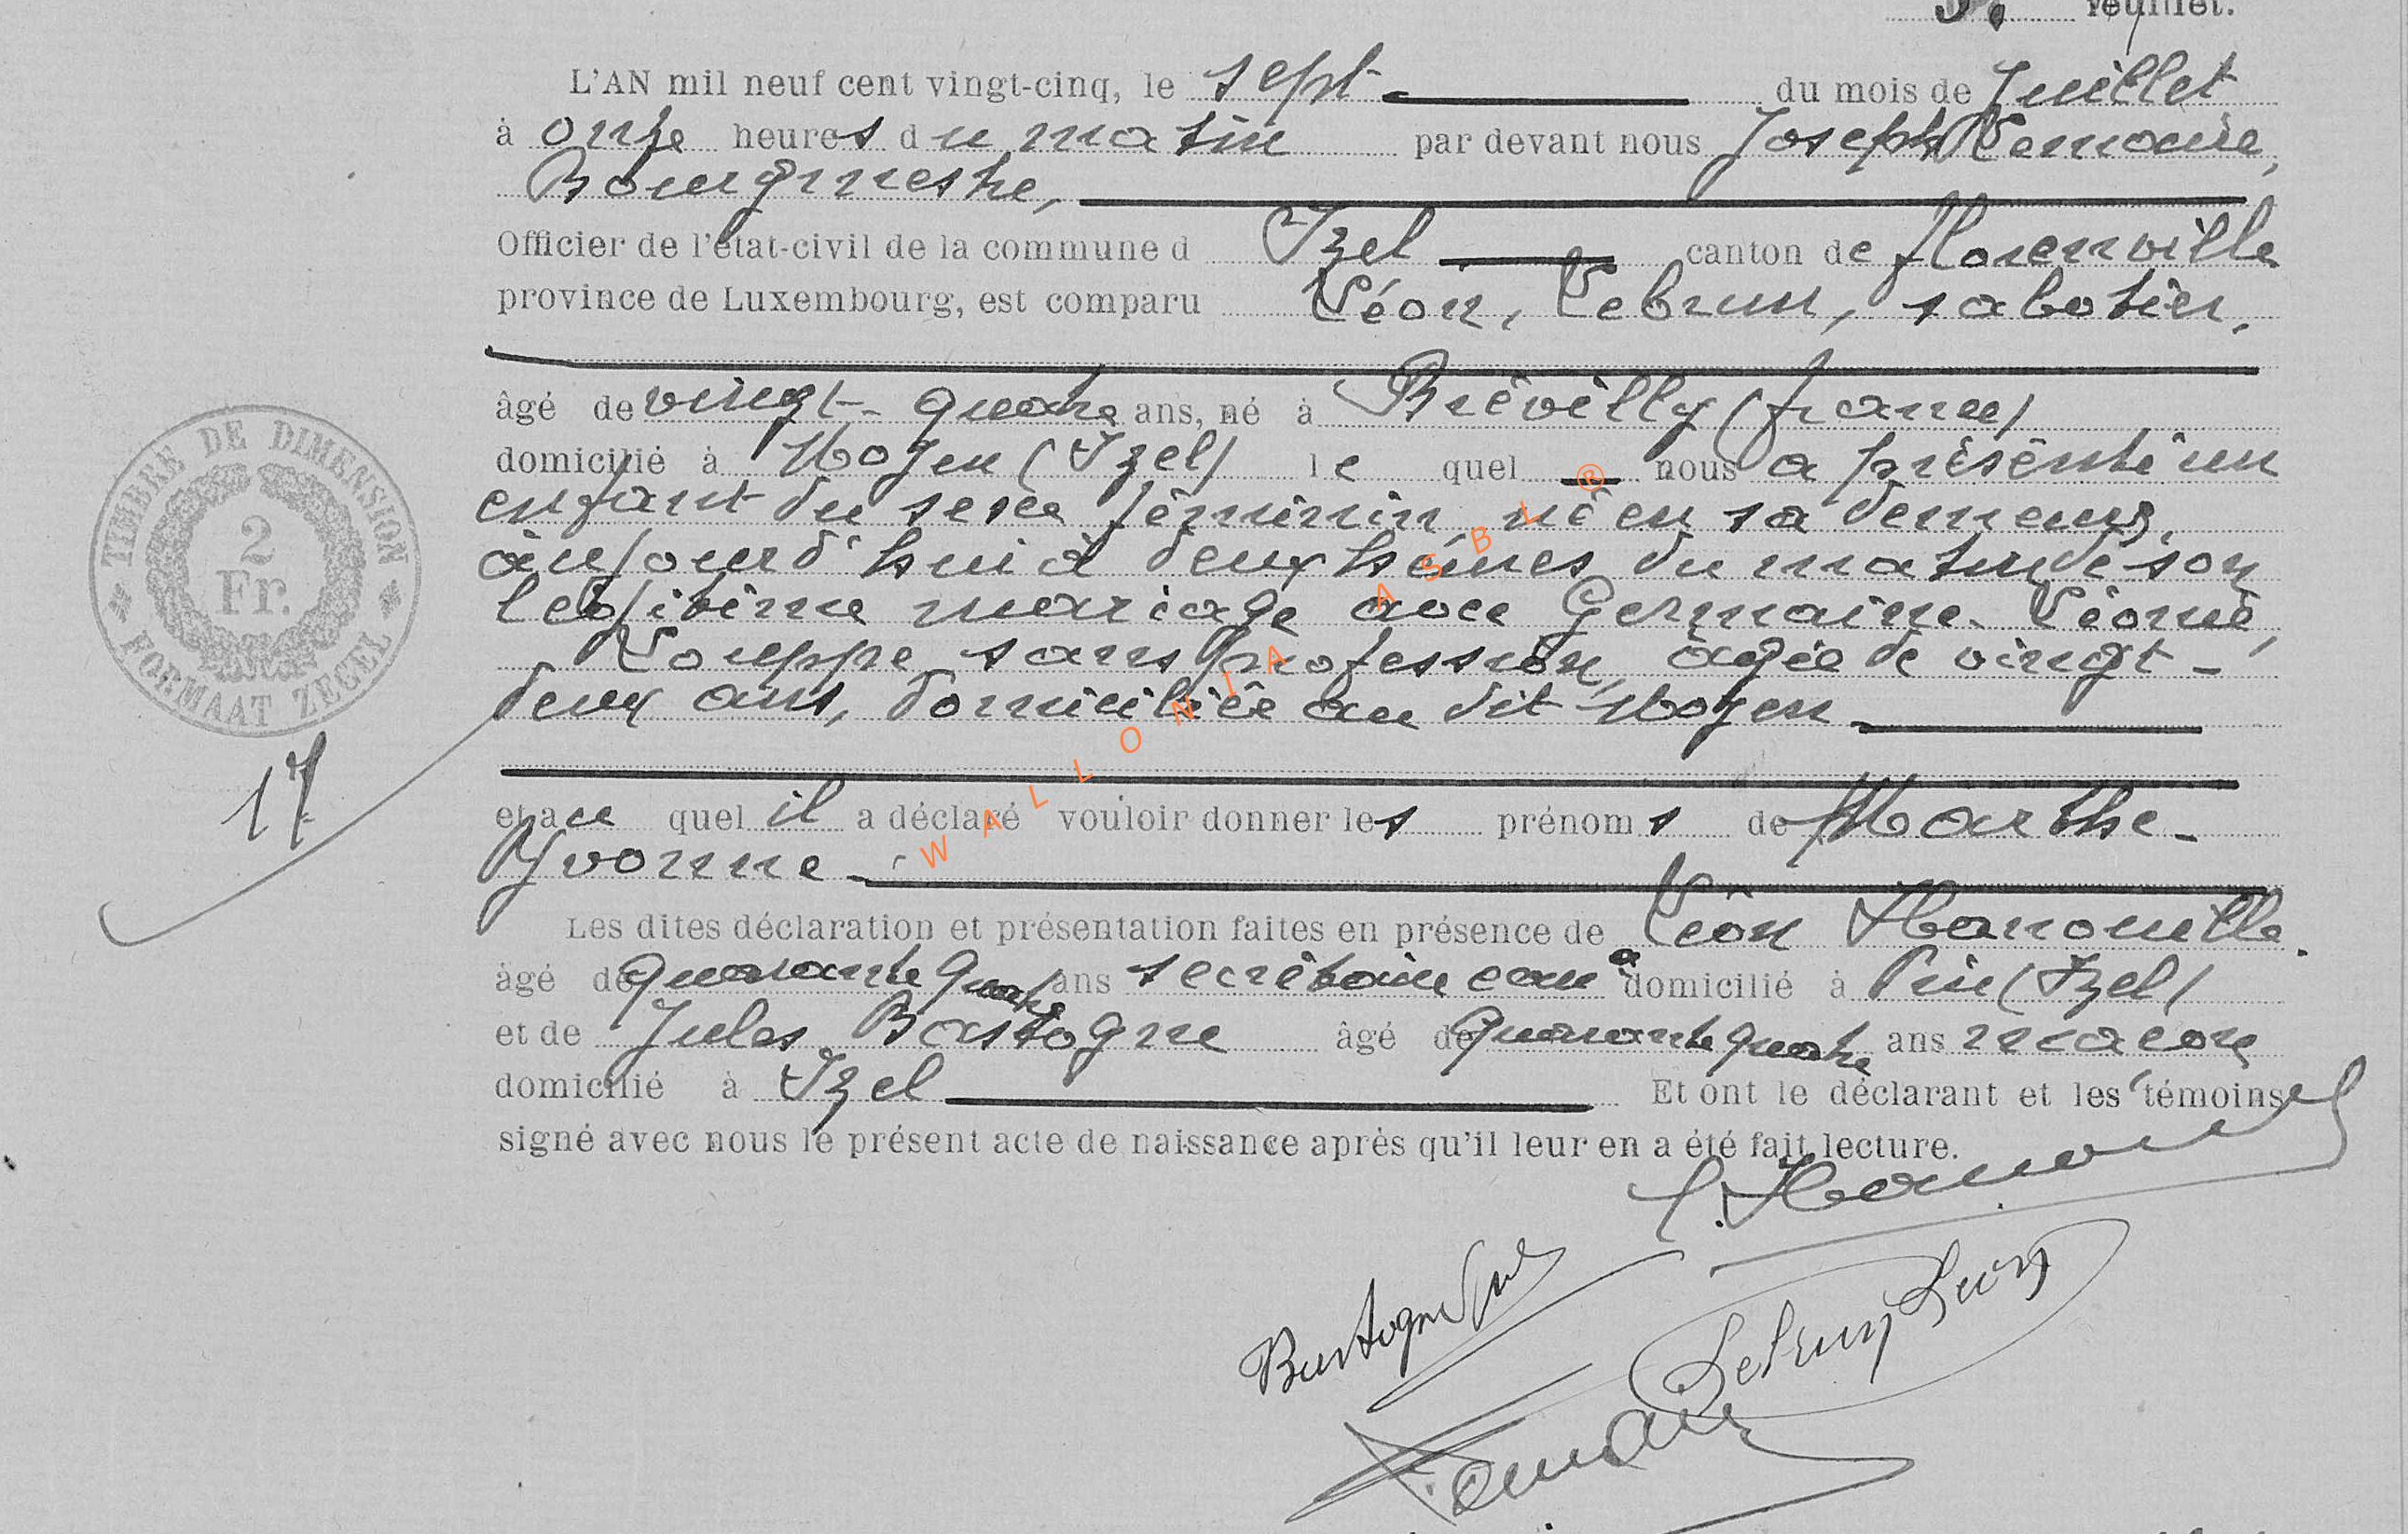 feuillet.
L'AN mil neuf cent vingt-cinq, le sept du mois de Juillet
à onze heures du matin par devant nous Joseph Lemoine,
Bourgmestre,
Officier de l'état-civil de la commune d Izel canton de florenville
province de Luxembourg, est comparu Léon, Lebrun, sabotier,
âgé de vingt-quatre ans, né à Brévilly (france)
domicilié à Moyen (Izel) le quel nous a présenté un
enfant du sexe féminin, né en sa demeure,
aujourd'hui à deux heures du matin de son
légitime mariage avec Germaine-Léonie,
Louppe, sans profession, agée de vingt-
deux ans, domiciliée au dit Moyen
et au quel il a déclaré vouloir donner les prénoms de Marthe-
Yvonne
Les dites déclaration et présentation faites en présence de Léon
âgé de quarante quatre ans secrétaire com domicilié à Pin (Izel)
et de Jules Bastogne âgé de quarante quatre ans maçon
domicilié à Izel Et ont le déclarant et les témoins
signé avec nous le présent acte de naissance après qu'il leur en a été fait lecture.
TIMBRE DE DIMENSION
2
Fr.
FORMAAT ZEGEL
17
WALLONIA ASBL ®
Bastogne Jules
Lebrun Léon